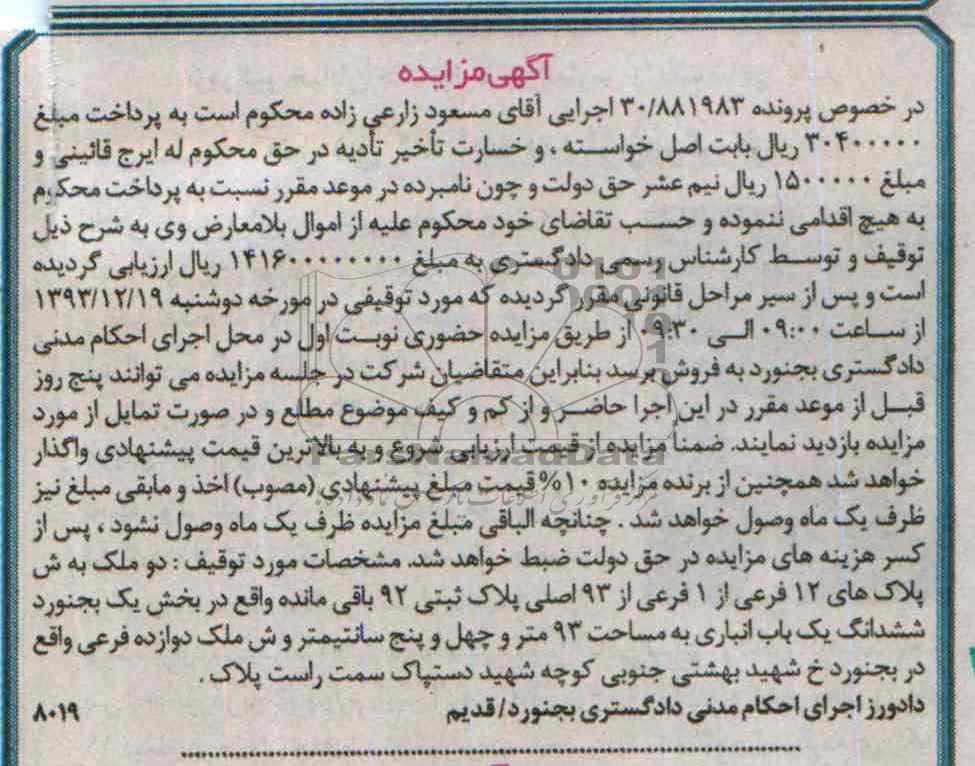 آگهی مزایده
در خصوص پرونده ۳۰/۸۸۱۹۸۳ اجرایی آقای مسعود زارعی زاده محکوم است به پرداخت مبلغ
۳۰۴۰۰۰۰۰ ریال بابت اصل خواسته ، و خسارت تأخیر تأدیه در حق محکوم له ایرج قائینی و
مبلغ ۱۵۰۰۰۰۰ ریال نیم عشر حق دولت و چون نامبرده در موعد مقرر نسبت به پرداخت محکوم
به هیچ اقدامی ننموده و حسب تقاضای خود محکوم علیه از اموال بلامعارض وی به شرح ذیل
توقیف و توسط کارشناس رسمی دادگستری به مبلغ ۱۴۱۶۰۰۰۰۰۰۰۰ ریال ارزیابی گردیده
است و پس از سیر مراحل قانونی مقرر گردیده که مورد توقیفی در مورخه دوشنبه ۱۳۹۳/۱۲/۱۹
از ساعت ۰۹:۰۰ الی ۰۹:۳۰ از طریق مزایده حضوری نوبت اول در محل اجرای احکام مدنی
دادگستری بجنورد به فروش برسد بنابراین متقاضیان شرکت در جلسه مزایده می توانند پنج روز
قبل از موعد مقرر در این اجرا حاضر و از کم و کیف موضوع مطلع و در صورت تمایل از مورد
مزایده بازدید نمایند. ضمناً مزایده از قیمت ارزیابی شروع و به بالاترین قیمت پیشنهادی واگذار
خواهد شد همچنین از برنده مزایده ۱۰% قیمت مبلغ پیشنهادی (مصوب) اخذ و مابقی مبلغ نیز
ظرف یک ماه وصول خواهد شد . چنانچه الباقی مبلغ مزایده ظرف یک ماه وصول نشود ، پس از
کسر هزینه های مزایده در حق دولت ضبط خواهد شد. مشخصات مورد توقیف : دو ملک به ش
پلاک های ۱۲ فرعی از ۱ فرعی از ۹۳ اصلی پلاک ثبتی ۹۲ باقی مانده واقع در بخش یک بجنورد
ششدانگ یک باب انباری به مساحت ۹۳ متر و چهل و پنج سانتیمتر و ش ملک دوازده فرعی واقع
در بجنورد خ شهید بهشتی جنوبی کوچه شهید دستپاک سمت راست پلاک .
دادورز اجرای احکام مدنی دادگستری بجنورد/ قدیم
۸۰۱۹
ParsNamadData